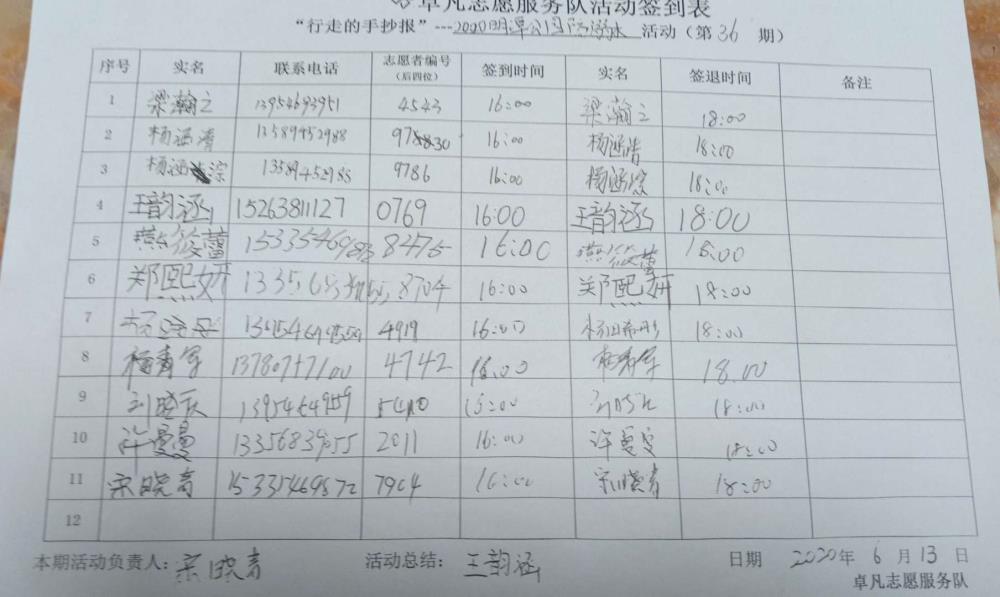 卓凡志愿服务队活动签到表
“行走的手抄报”---2020明潭公园防溺水 活动（第36期）
序号 实名 联系电话 志愿者编号（后四位） 签到时间 实名 签退时间 备注
1 梁瀚之 13954693951 4543 16:00 梁瀚之 18:00
2 杨涵清 13589452988 16:00 杨涵清 18:00
3 杨涵淙 13589452988 9786 16:00 杨涵淙 18:00
4 王韵涵 15263811127 0769 16:00 王韵涵 18:00
5 燕筱蕾 8475 16:00 燕筱蕾
6 郑熙妍 8704 16:00 郑熙妍 18:00
7 4919 16:00 18:00
8 杨青军 4742 18.00
9 刘晓庆 18:00
10 许曼曼 13356839055 2011 16:00 许曼曼 18:00
11 宋晓青 7904 16:00 宋晓青 18:00
12
本期活动负责人：宋晓青 活动总结：王韵涵 日期 2020年6月13日
卓凡志愿服务队